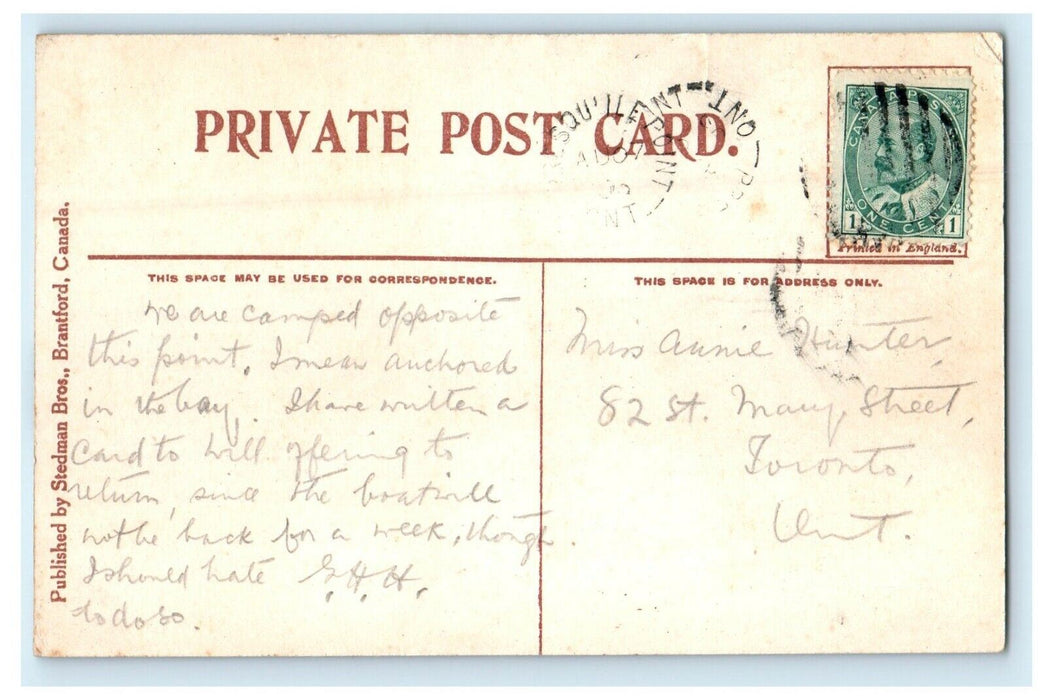 PRIVATE POST CARD.
CANADA POSTAGE
1 ONE CENT 1
Printed in England.
THIS SPACE MAY BE USED FOR CORRESPONDENCE.
THIS SPACE IS FOR ADDRESS ONLY.
Published by Stedman Bros., Brantford, Canada.
We are camped opposite
this point, I mean anchored
in the bay. I have written a
card to Will offering to
return, since the boat will
not be back for a week, though
I should hate G.H.H.
to do so.
Miss Annie Hunter,
82 St. Mary Street,
Toronto,
Ont.
ONT